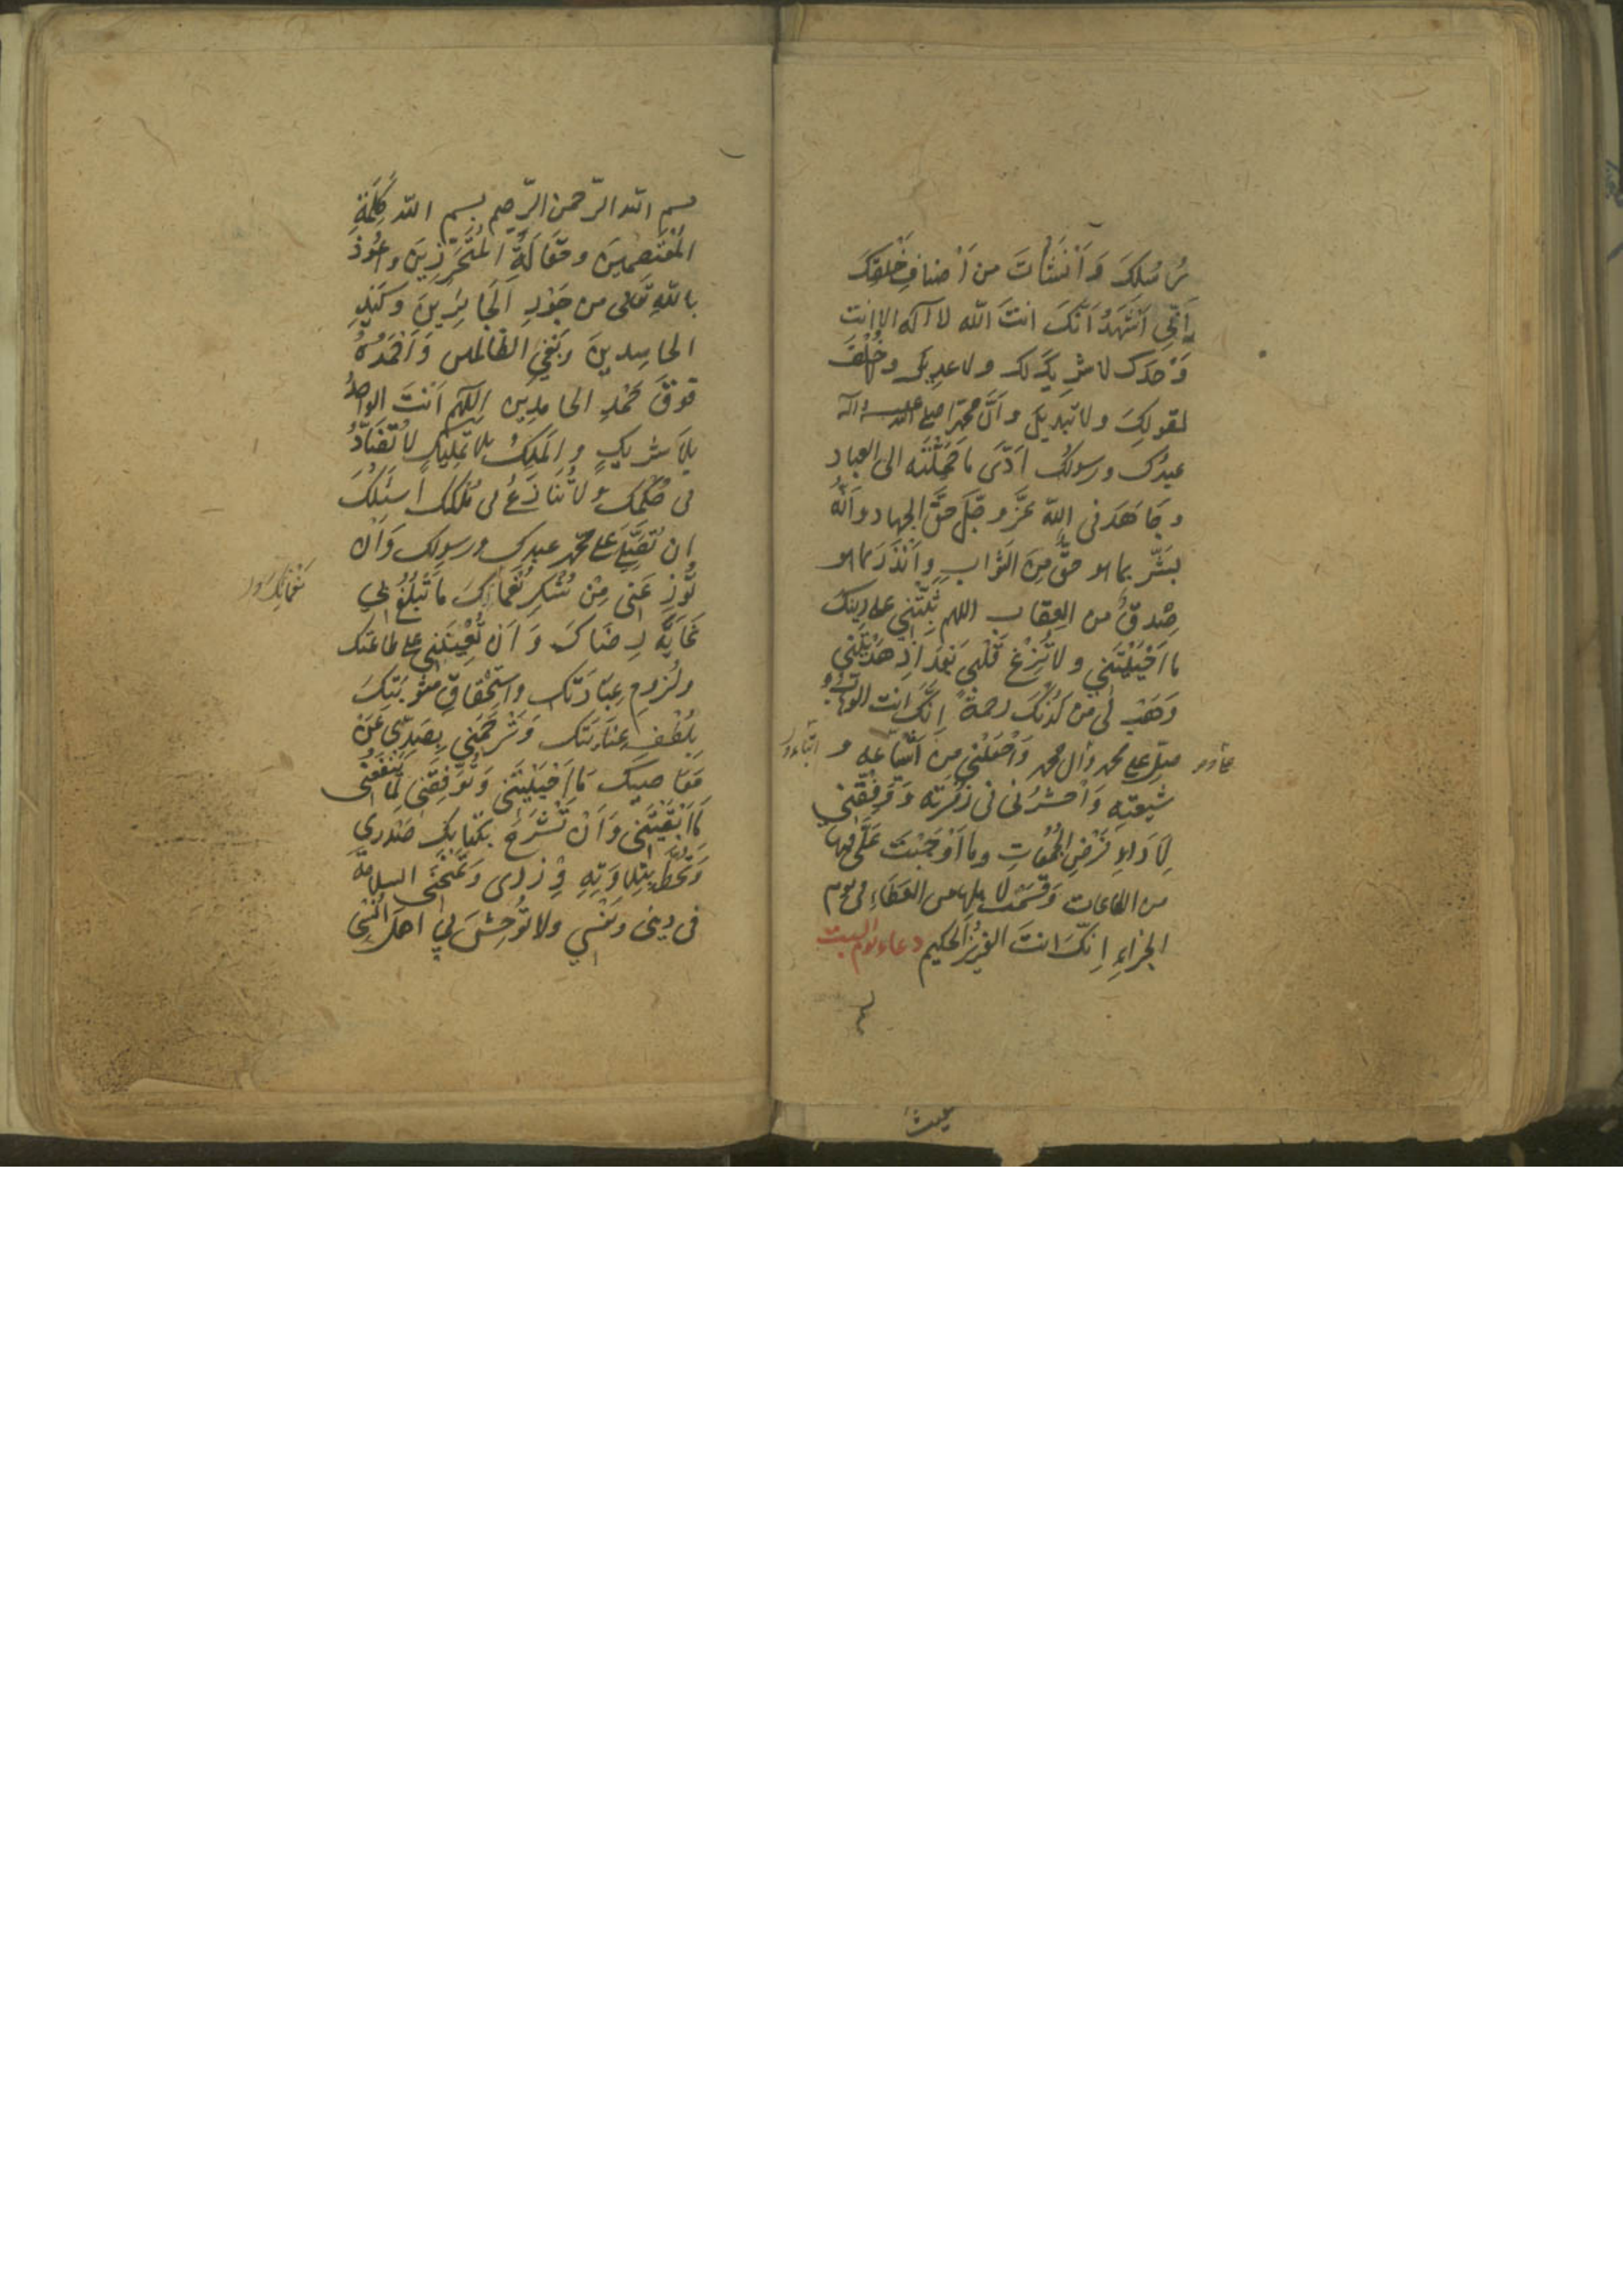 رُسُلِكَ وَ اَنْشَأْتَ من اَصْنافِ خَلْقِكَ
اَنّي اَشْهَدُ اَنَّكَ انتَ اللّه لا اله الا انت
وَحْدَك لا شَرِيكَ لك ولا عديل ولا خُلْفَ
لقولِكَ ولا تبديل و اَنَّ محمّدا صلى الله عليه واله
عبدُك و رسولُك اَدّى ما حَمَّلْتَه الى العباد
و جَاهَدَ فى اللّه عَزَّ و جَلَّ حَقَّ الجهاد و اَنَّهُ
بَشَّرَ بما هو حقٌّ مِنَ الثَّوابِ وَ اَنْذَرَ بما هو
صِدقٌ من العِقاب اللهم ثَبِّتْني على دينك
ما اَحْيَيْتَني ولا تُزِغْ قَلْبي بَعْدَ اِذْ هَدَيْتَني
وَهَبْ لى من لَدُنْكَ رحمةً اِنَّكَ انت الوَهّابُ
صلّ على محمد و ال محمد وَاجْعَلْني من اَتْباعِهِ و
شيعَتِه وَاحْشُرْنى فى زُمْرَتِه وَ وَفِّقْني
لِاَداءِ فَرْضِ الجُمُعاتِ وما اَوْجَبْتَ عَلَيَّ فيها
من الطاعات وَ قَسَمْتَ لاهلها من العَطاءِ فى يوم
الجزاءِ اِنَّكَ انتَ العَزيزُ الحكيم دعاء يوم السبت
بسم الله الرّحمن الرّحيم بسم اللّه كَلِمَةِ
المُعْتَصِمينَ و مَقَالَةِ المُتَحَرِّزينَ و اعُوذُ
باللّهِ تَعالى من جَوْرِ الجَائِرينَ و كَيْدِ
الحاسِدينَ و بَغْيِ الظالمين وَ اَحْمَدُهُ
فَوْقَ حَمْدِ الحامِدين اللّهم اَنْتَ الواحِدُ
بِلا شَريكٍ و المَلِكُ بلا تَمْليكٍ لا تُضَادُّ
فى حُكْمِك ولا تُنازَعُ فى مُلْكِك اَسْئَلُكَ
ان تُصَلِّيَ على محمّد عبدِك و رسولِك وَ اَنْ
تُوزِعَني مِنْ شُكْرِ نُعْماكَ ما تَبْلُغُ بي
غَايَةَ رِضَاكَ وَ اَن تُعينَني على طاعتك
ولُزومِ عِبَادَتِك و اسْتِحْقاقِ مَثُوبَتِكَ
بِلُطْفِ عِنَايَتِك وَ تَرْحَمَني بِصَدّي عَنْ
مَعَاصيكَ مَا اَحْيَيْتَنى وَ تُوَفِّقَنى لِمَا يَنْفَعُنى
مَا اَبْقَيْتَنى وَ اَنْ تَشْرَحَ بكتابِك صَدْري
وَتَحُطَّ بِتِلاوَتِهِ وِزْرى وَتَمْنَحَنى السلامةَ
فى دينى وَ نَفْسي ولا تُوحِشَ بي اهلَ اُنْسى